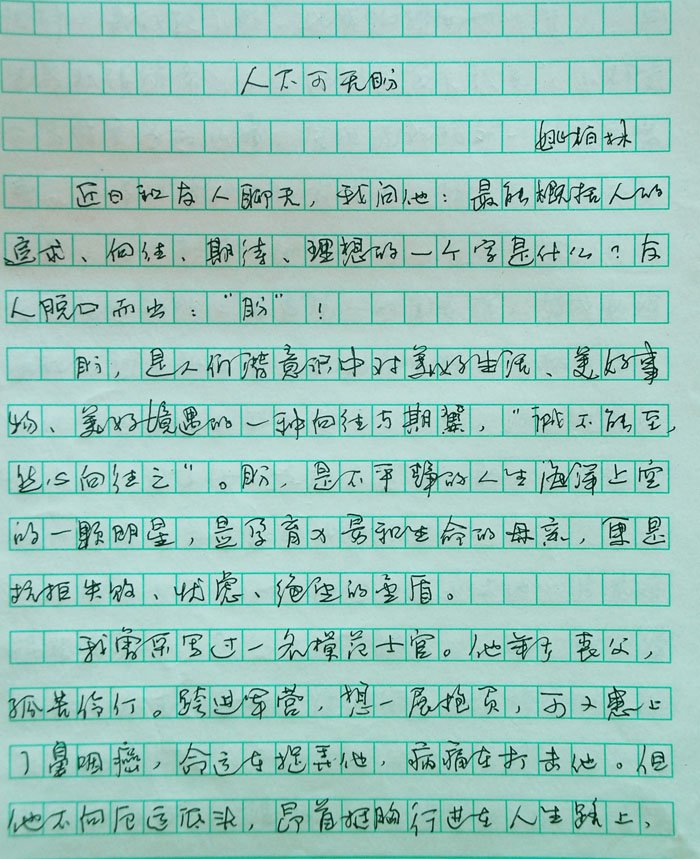 人不可无盼
姚柏林
近日和友人聊天，我问他：最能概括人的
追求、向往、期待、理想的一个字是什么？友
人脱口而出：“盼”！
盼，是人们潜意识中对美好生活、美好事
物、美好境遇的一种向往与期冀，“虽不能至，
然心向往之”。盼，是不平静的人生海洋上空
的一颗明星，是孕育力量和生命的母亲，更是
抗拒失败、忧虑、绝望的坚盾。
我曾采写过一名模范士官。他年少丧父，
孤苦伶仃。跨进军营，想一展抱负，可又患上
了鼻咽癌，命运在捉弄他，病痛在打击他。但
他不向厄运低头，昂首挺胸行进在人生路上，